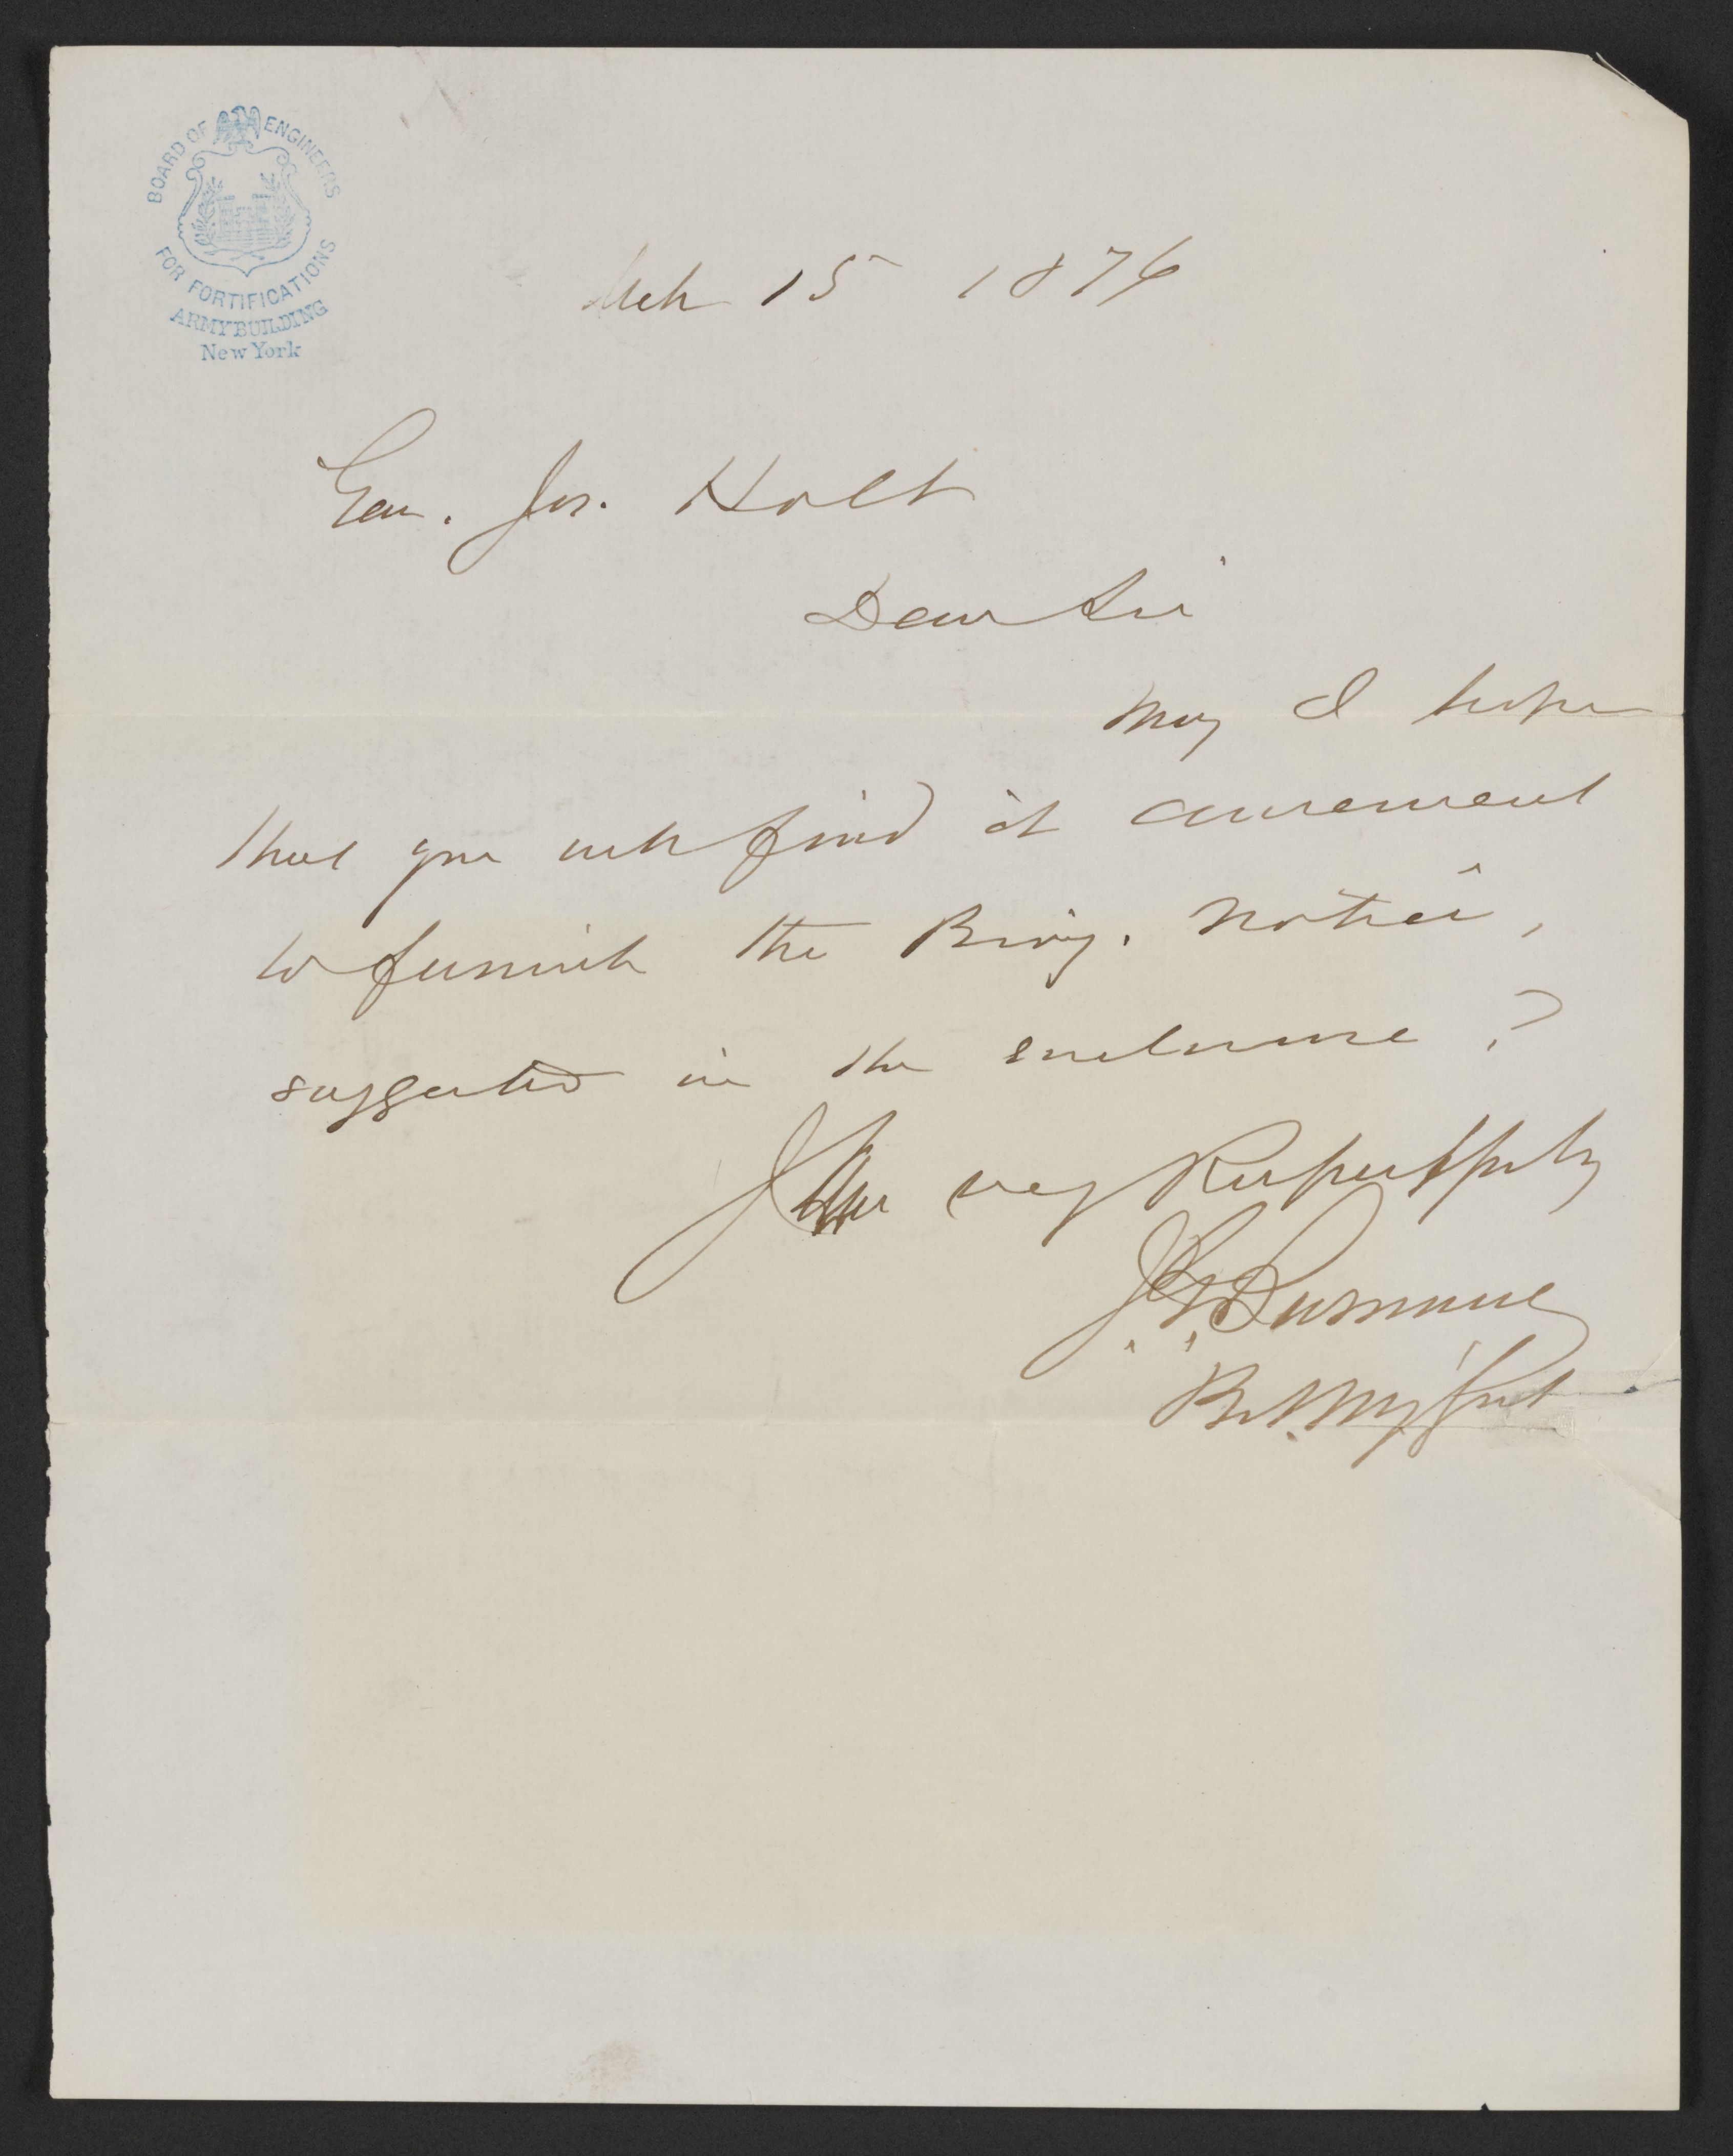 BOARD OF ENGINEERS
FOR FORTIFICATIONS
ARMY BUILDING
New York
Mch 15 1876
Gen. Jos. Holt
Dear Sir
May I hope
that you will find it convenient
to furnish the Biog. notice,
suggested in the enclosure?
very Respectfully
J. G. Barnard
Bt. Maj Genl